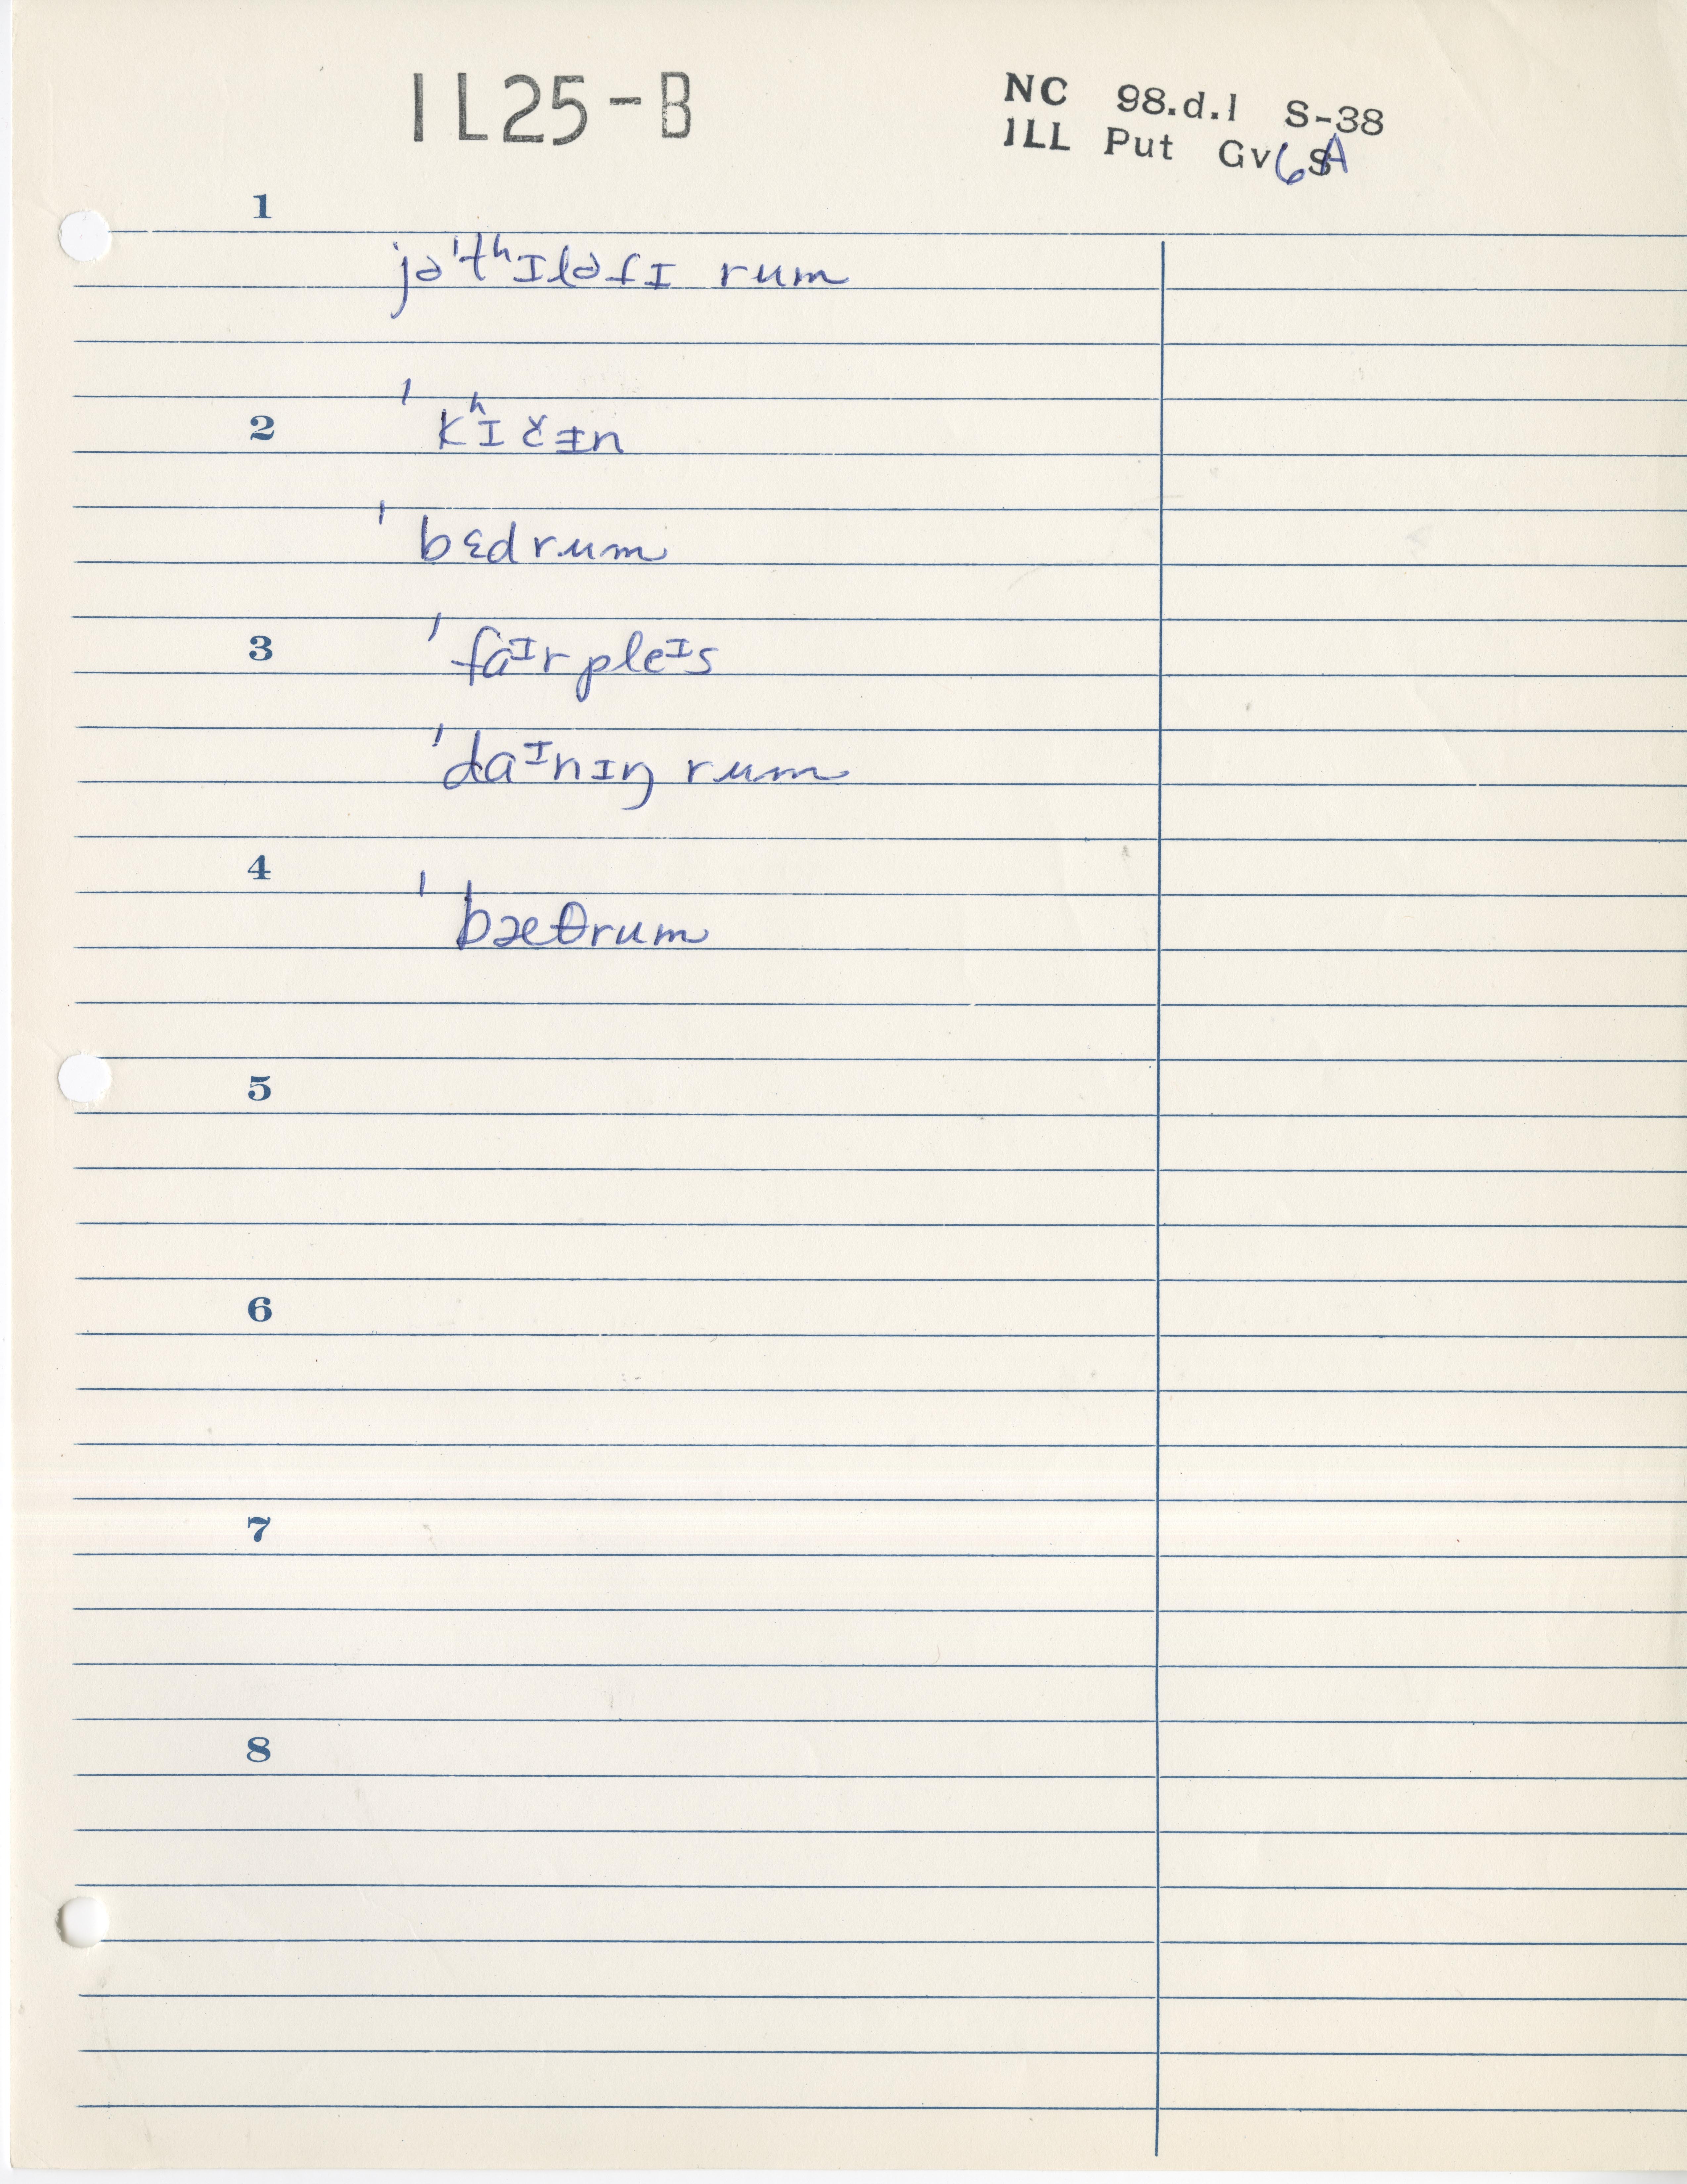 IL25-B
NC 98.d.1 S-38
ILL Put Gv 6 A
1
jə'tʰɪləfɪ rum
2 'kʰɪčɪ̵n
'bɛdrum
3 'faᶦrpleᶦs
'daᶦnɪŋ rum
4
'bæθrum
5
6
7
8